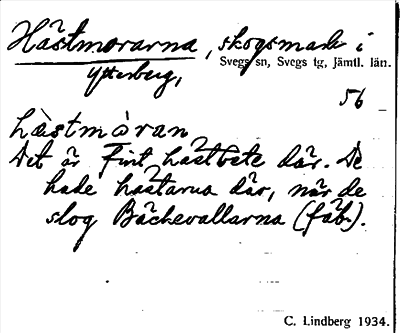 Hästmorarna, skogsmark i
Svegs sn, Svegs tg, Jämtl. län.
Ytterberg,
56
hàstmòran
Det är fint hästbete där. De
hade hästarna där, när de
slog Bäckevallarna (fäb.).
C. Lindberg 1934.